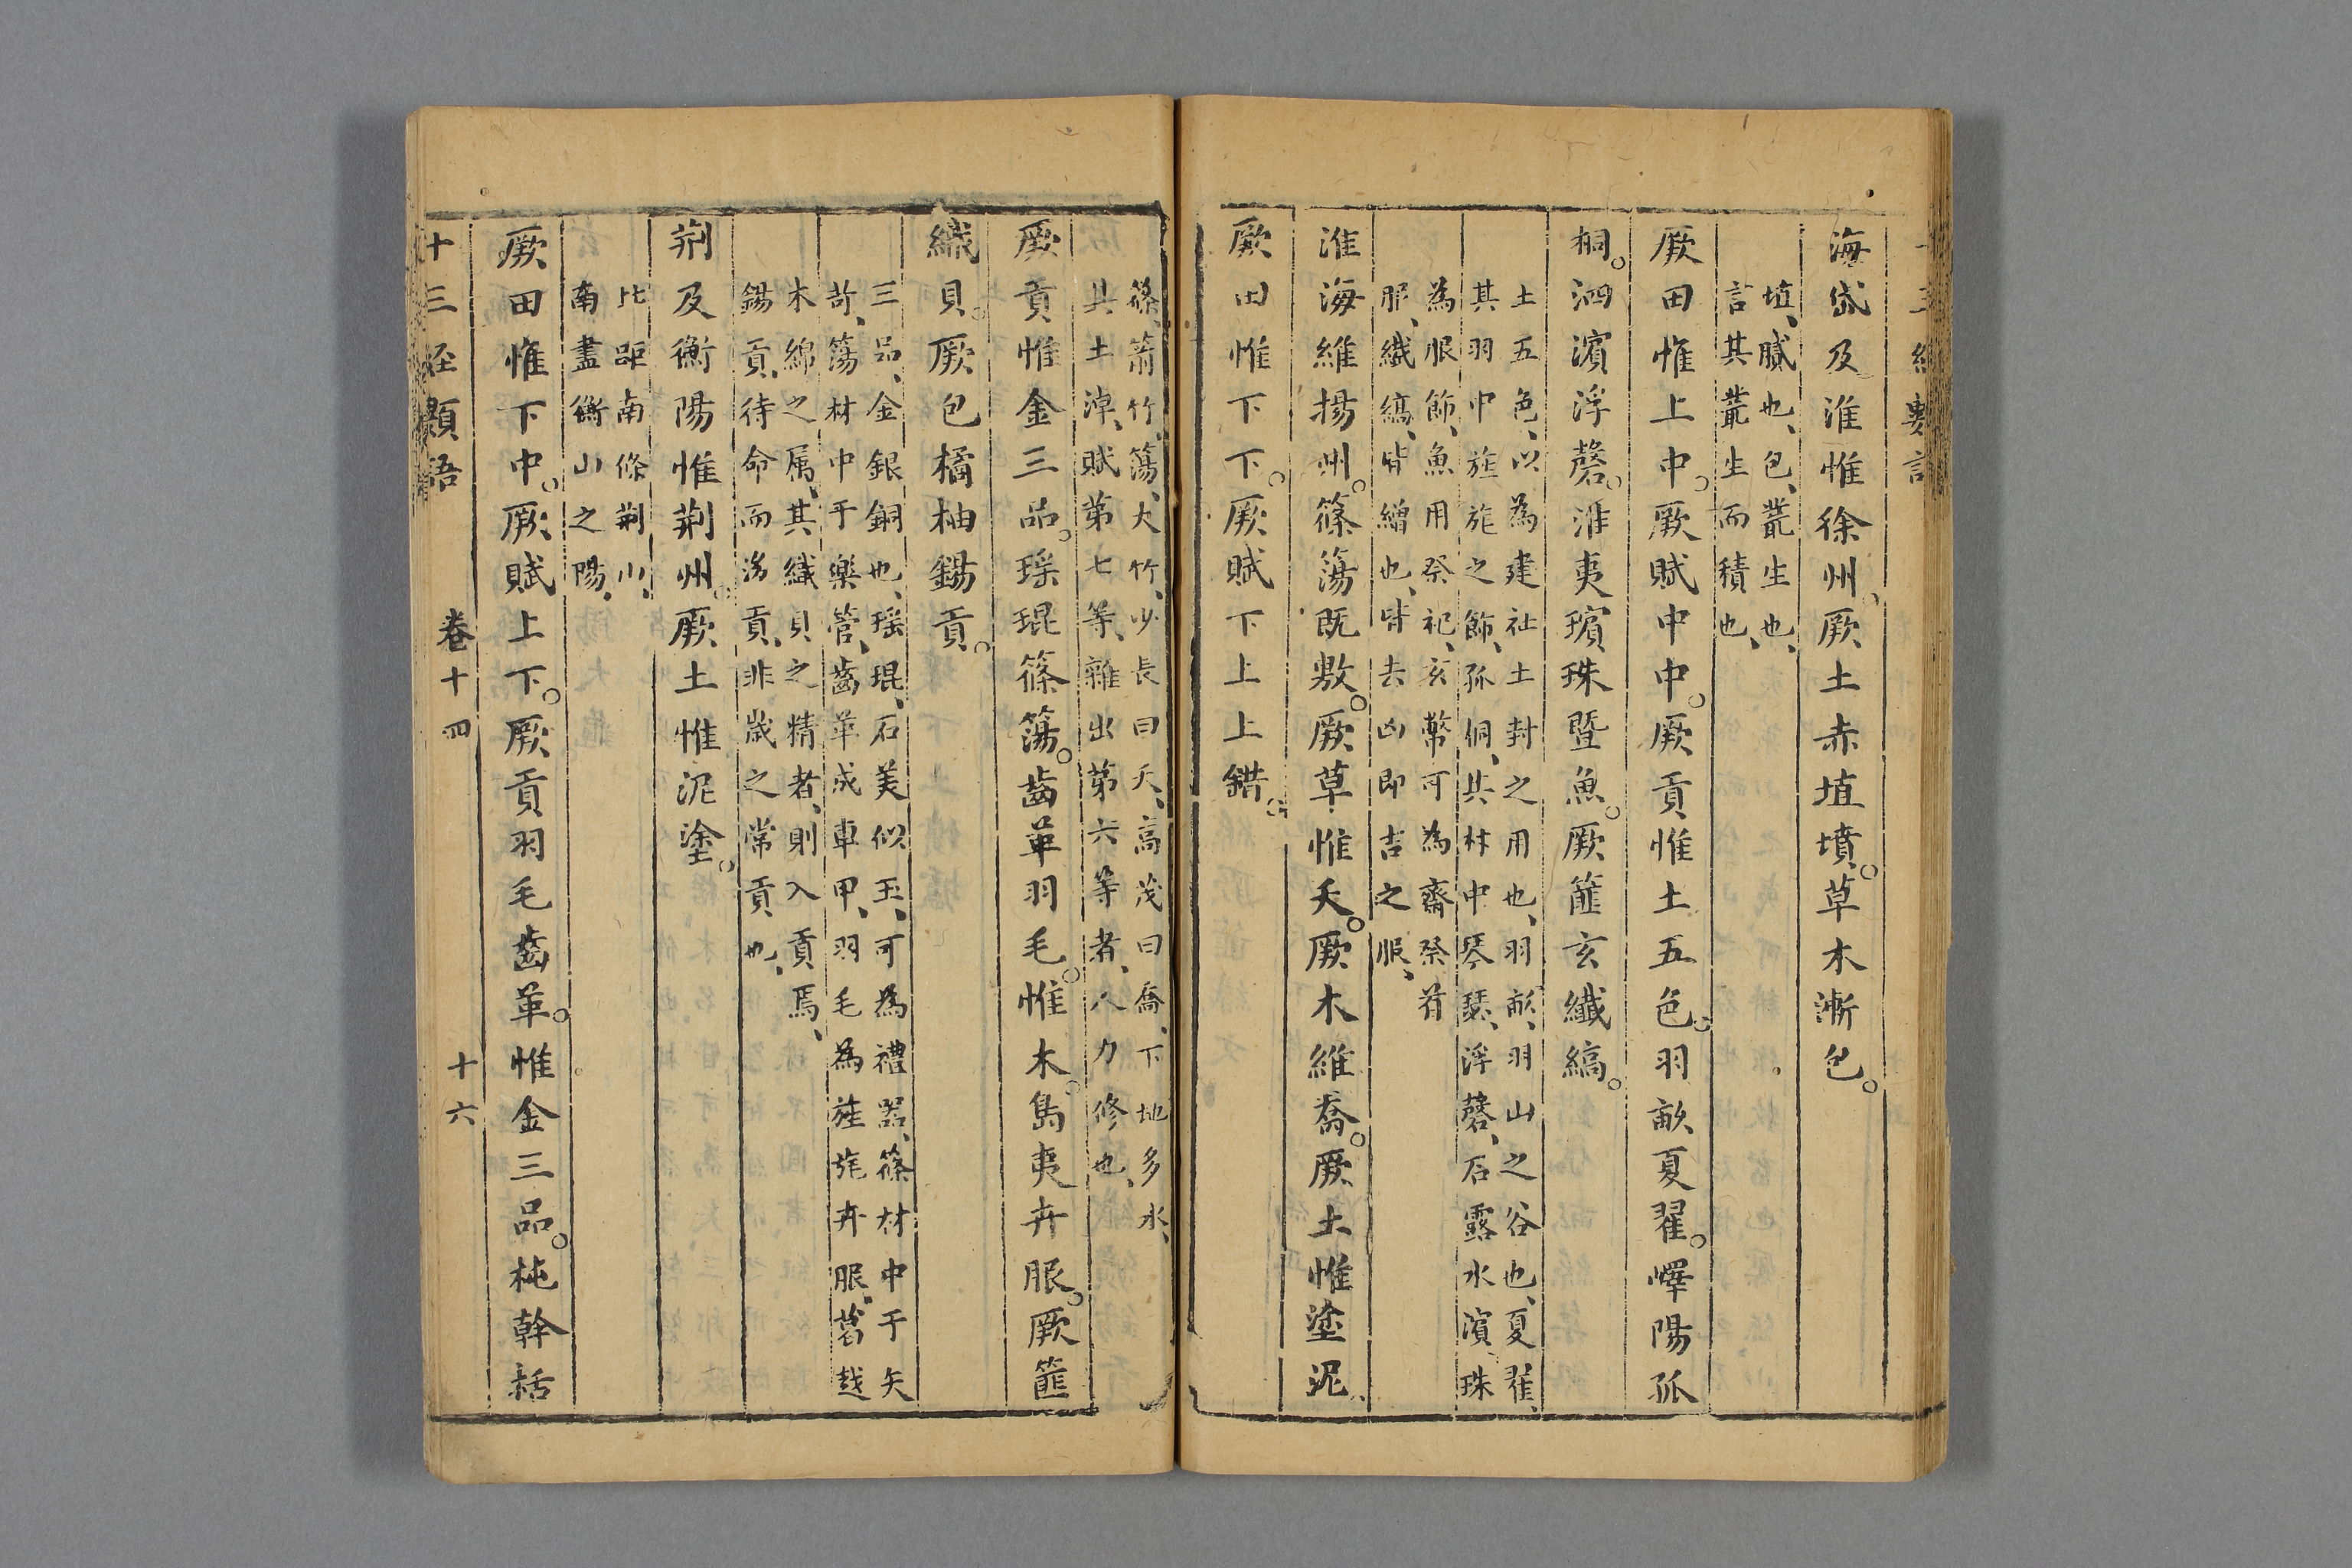 海岱及淮惟徐州厥土赤埴墳草木漸包
埴膩也包叢生也
言其叢生而積也
厥田惟上中厥賦中中厥貢惟土五色羽畎夏翟嶧陽孤
桐泗濱浮磬淮夷蠙珠暨魚厥篚玄纖縞
土五色以為建社土封之用也羽畎羽山之谷也夏翟
其羽中旌旄之飾孤桐其材中琴瑟浮磬石露水濱珠
為服飾魚用祭祀玄幣可為齋祭
服纖縞皆繒也皆去凶即吉之服
淮海維揚州篠簜既敷厥草惟夭厥木維喬厥土惟塗泥
厥田惟下下厥賦下上上錯
篠箭竹簜大竹少長曰夭高茂曰喬下地多水
其土淖賦第七等雜出第六等者人力修也
厥貢惟金三品瑤琨篠簜齒革羽毛惟木島夷卉服厥篚
織貝厥包橘柚錫貢
三品金銀銅也瑤琨石美似玉可為禮器篠材中于矢
苛簜材中于樂管齒革成車甲羽毛為旌旄卉服葛越
木綿之属其織貝之精者則入貢焉
錫貢待命而後貢非歲之常貢也
荆及衡陽惟荆州厥土惟泥塗
北距南條荆山
南盡衡山之陽
厥田惟下中厥賦上下厥貢羽毛齒革惟金三品杶幹栝
十三經類語 卷十四 十六